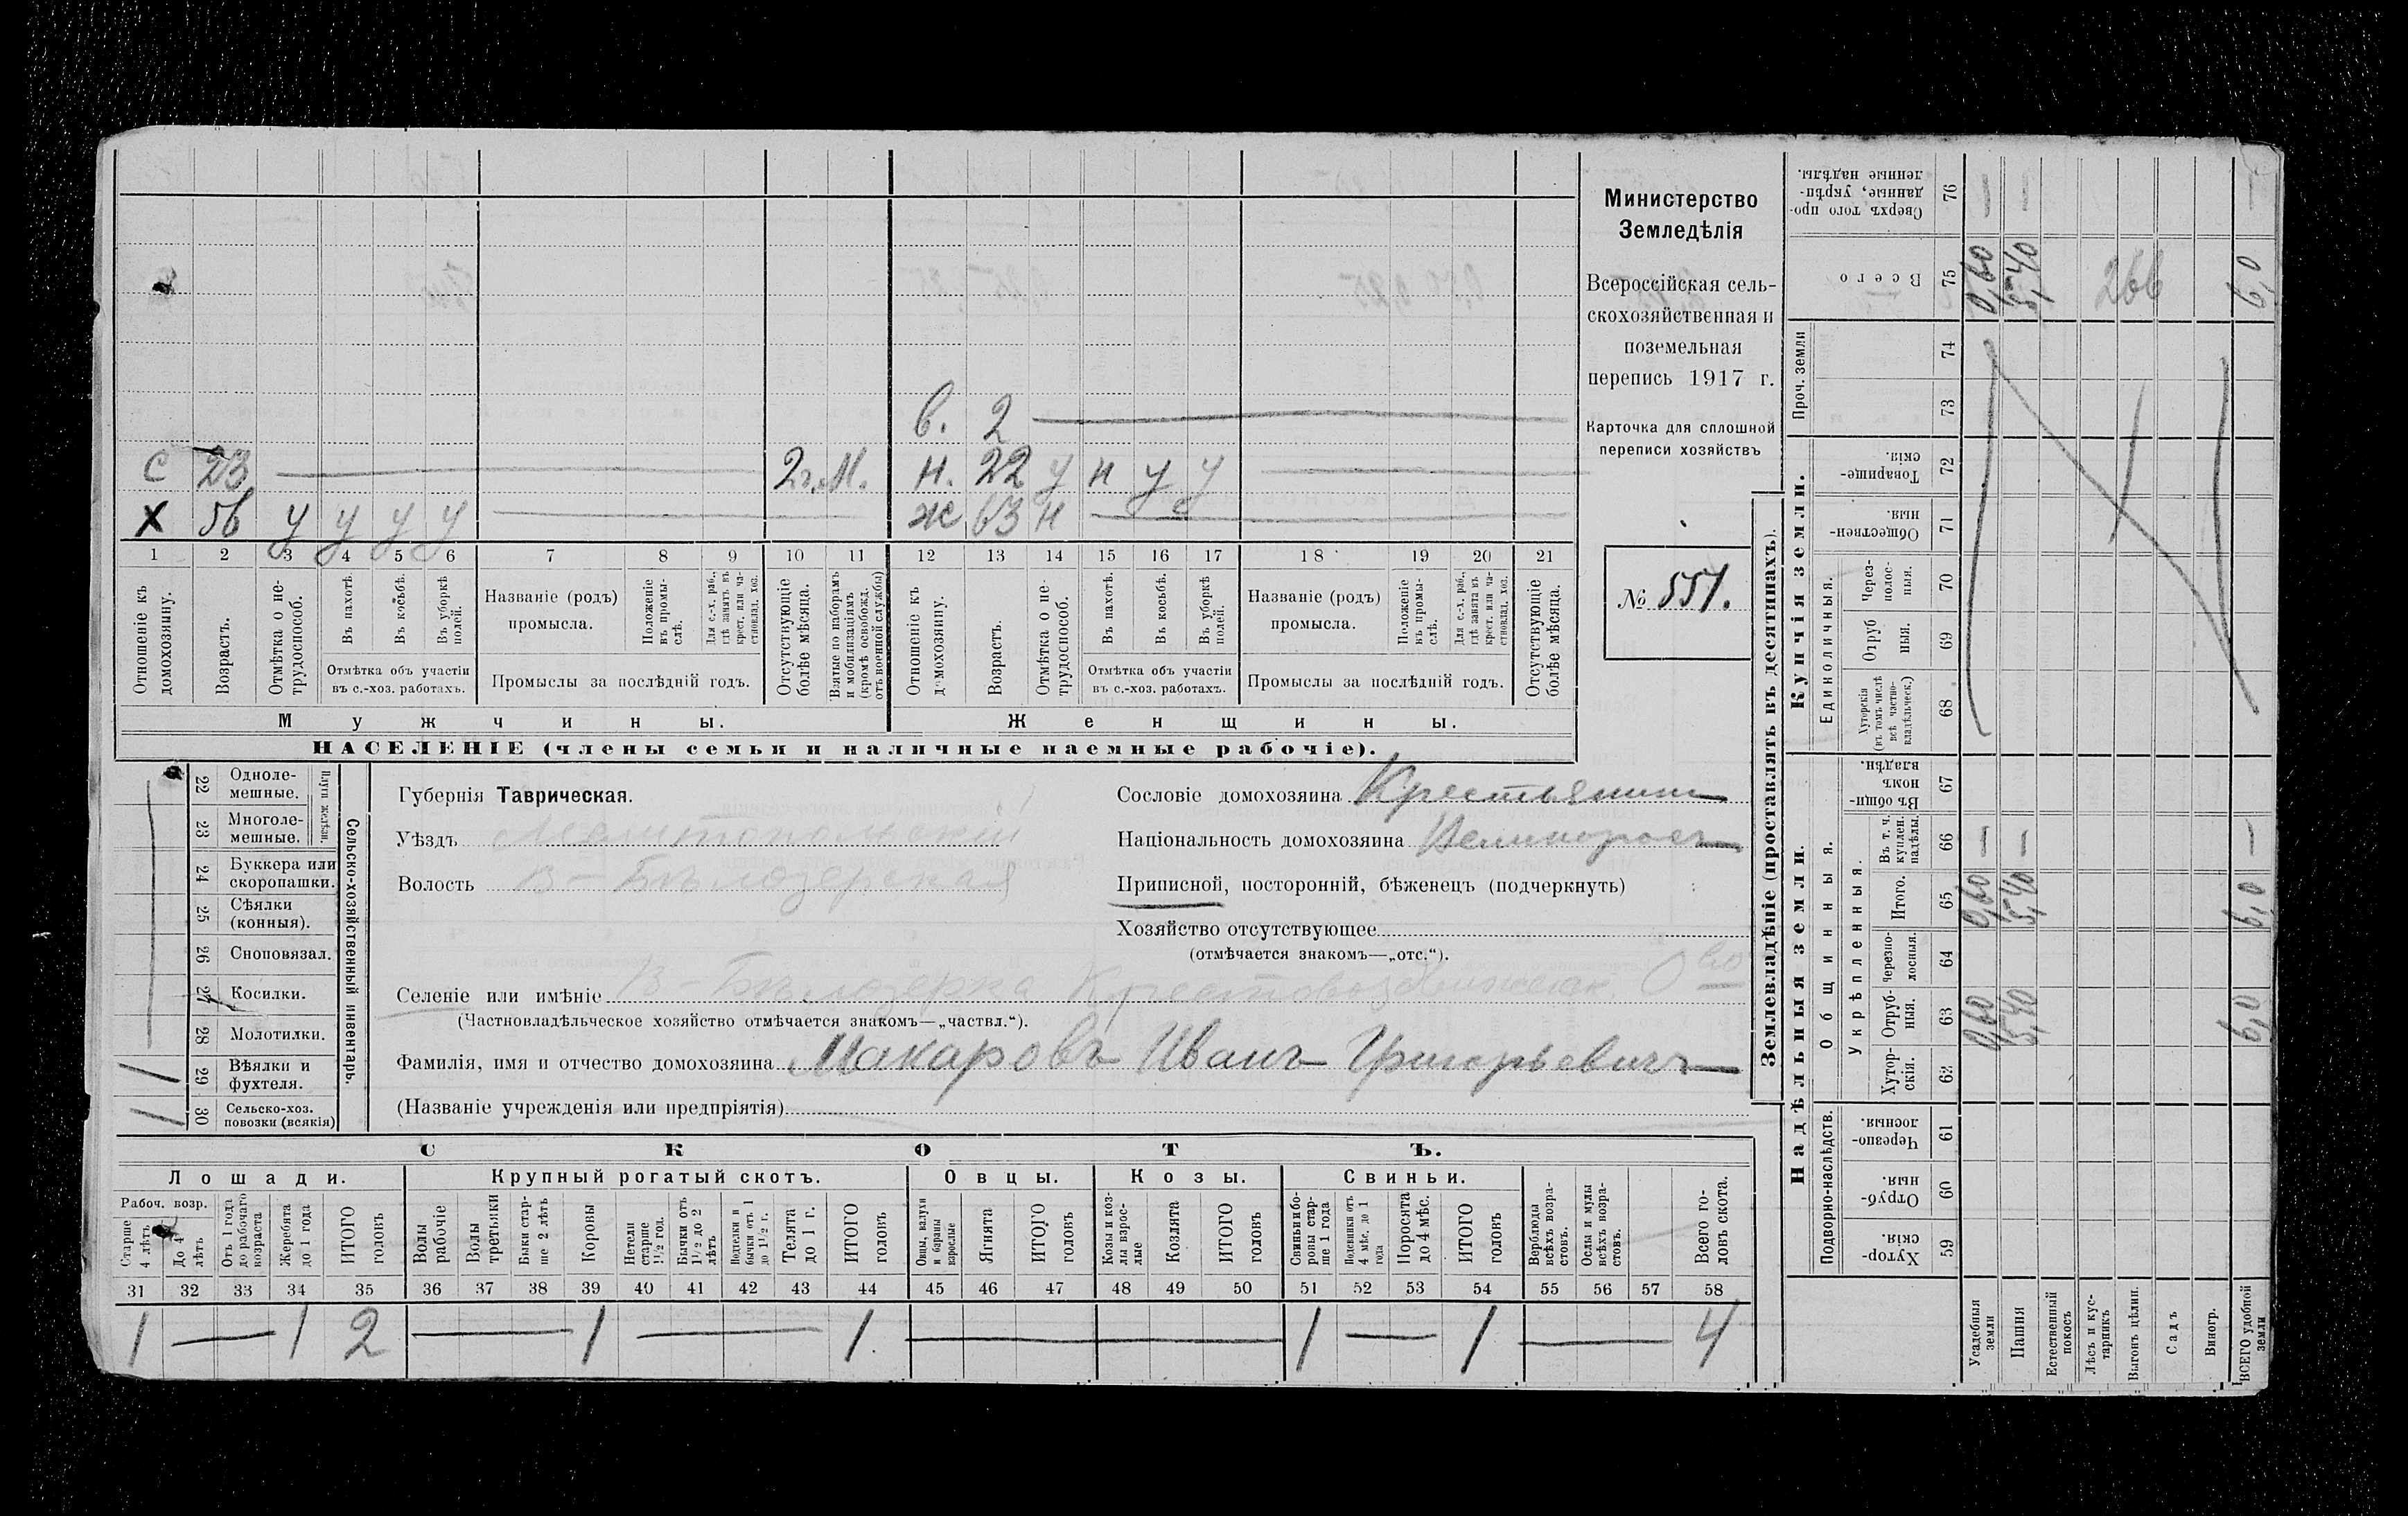 Министерство
Земледѣлія
Всероссійская сель-
скохозяйственная и
поземельная
перепись 1917 г.
Карточка для сплошной
переписи хозяйствъ
№ 551.
в. 2
с 23 2г. М. н. 22 у н у у
х 56 у у у у ж 63 н
1 2 3 4 5 6 7 8 9 10 11 12 13 14 15 16 17 18 19 20 21
Отношеніе къ домохозяину.
Возрастъ.
Отмѣтка о не-
трудоспособ.
Въ пахотѣ.
Въ косьбѣ.
Въ уборкѣ полей.
Отмѣтка объ участіи
въ с.-хоз. работахъ.
Названіе (родъ)
промысла.
Положеніе въ промы-
слѣ.
Для с.-х. раб., гдѣ занятъ въ крест. или ча-
стновлад. хоз.
Промыслы за послѣдній годъ.
Отсутствующіе болѣе мѣсяца.
Взятые по наборамъ и мобилизаціямъ (кромѣ освобожд. отъ военной службы)
Отношеніе къ домохозяину.
Возрастъ.
Отмѣтка о не-
трудоспособ.
Въ пахотѣ.
Въ косьбѣ.
Въ уборкѣ полей.
Отмѣтка объ участіи
въ с.-хоз. работахъ.
Названіе (родъ)
промысла.
Положеніе въ промы-
слѣ.
Для с.-х. раб., гдѣ занята въ крест. или ча-
стновлад. хоз.
Промыслы за послѣдній годъ.
Отсутствующіе болѣе мѣсяца.
Мужчины. Женщины.
НАСЕЛЕНІЕ (члены семьи и наличные наемные рабочіе).
22 Одноле-
мешные.
23 Многоле-
мешные.
Плуги желѣзн.
24 Буккера или
скоропашки.
25 Сѣялки
(конныя).
26 Сноповязал.
27 Косилки.
28 Молотилки.
1 29 Вѣялки и
фухтеля.
1 30 Сельско-хоз.
повозки (всякія)
Сельско-хозяйственный инвентарь.
Губернія Таврическая.
Уѣздъ Мелитопольскій
Волость В-Бѣлозерская
Сословіе домохозяина Крестьянинъ
Національность домохозяина Великороссъ
Приписной, посторонній, бѣженецъ (подчеркнуть)
Хозяйство отсутствующее
(отмѣчается знакомъ—„отс.“).
Селеніе или имѣніе В-Бѣлозерка
(Частновладѣльческое хозяйство отмѣчается знакомъ—„частвл.“).
Фамилія, имя и отчество домохозяина Макаровъ Иванъ Григорьевичъ
(Названіе учрежденія или предпріятія)
СКОТЪ.
Лошади. Крупный рогатый скотъ. Овцы. Козы. Свиньи.
Рабоч. возр.
Старше 4 лѣтъ
До 4 лѣтъ
Отъ 1 года до рабочаго возраста
Жеребята до 1 года
ИТОГО головъ
Волы рабочіе
Волы третьяки
Быки стар-
ше 2 лѣтъ
Коровы
Нетели старше 1½ год.
Бычки отъ 1½ до 2 лѣтъ
Подтелки и бычки отъ 1 до 1½ г.
Телята до 1 г.
ИТОГО головъ
Овцы, валухи и бараны взрослые
Ягнята
ИТОГО головъ
Козы и коз-
лы взрос-
лые
Козлята
ИТОГО головъ
Свиньи и бо-
ровы стар-
ше 1 года
Подсвинки отъ 4 мѣс. до 1 года
Поросята до 4 мѣс.
ИТОГО головъ
Верблюды всѣхъ возра-
стовъ.
Ослы и мулы всѣхъ возра-
стовъ.
Всего го-
ловъ скота.
31 32 33 34 35 36 37 38 39 40 41 42 43 44 45 46 47 48 49 50 51 52 53 54 55 56 57 58
1 — 1 2 — 1 — 1. — 1 — 1 — 4
Землевладѣніе (проставлять въ десятинахъ).
Сверхъ того про-
данные, укрѣп-
ленные надѣлы. 76
Всего 75 0,60 5,40 266 6,0
Проч. земли 74 73
Купчія земли.
Товарище-
скія. 72
Обществен-
ныя. 71
Единоличныя.
Через-
полос-
ныя. 70
Отруб
ныя. 69
Хуторскія (въ томъ числѣ всѣ частно-
владѣльческ.) 68
Надѣльныя земли.
Общинныя.
Въ общин-
номъ
владѣн. 67
Укрѣпленныя.
Въ т. ч. куплен. надѣлы. 66
Итого. 65 0,60 5,40 6,0
Черезпо-
лосныя. 64
Отруб-
ныя. 63 0,60 5,40 6,0
Хутор-
скія. 62
Подворно-наслѣдств.
Черезпо-
лосныя. 61
Отруб-
ныя. 60
Хутор-
скія. 59
Усадебныя земли
Пашня
Естественный покосъ
Лѣсъ и кус-
тарникъ
Выгонъ цѣлин.
Садъ
Виногр.
ВСЕГО удобной земли